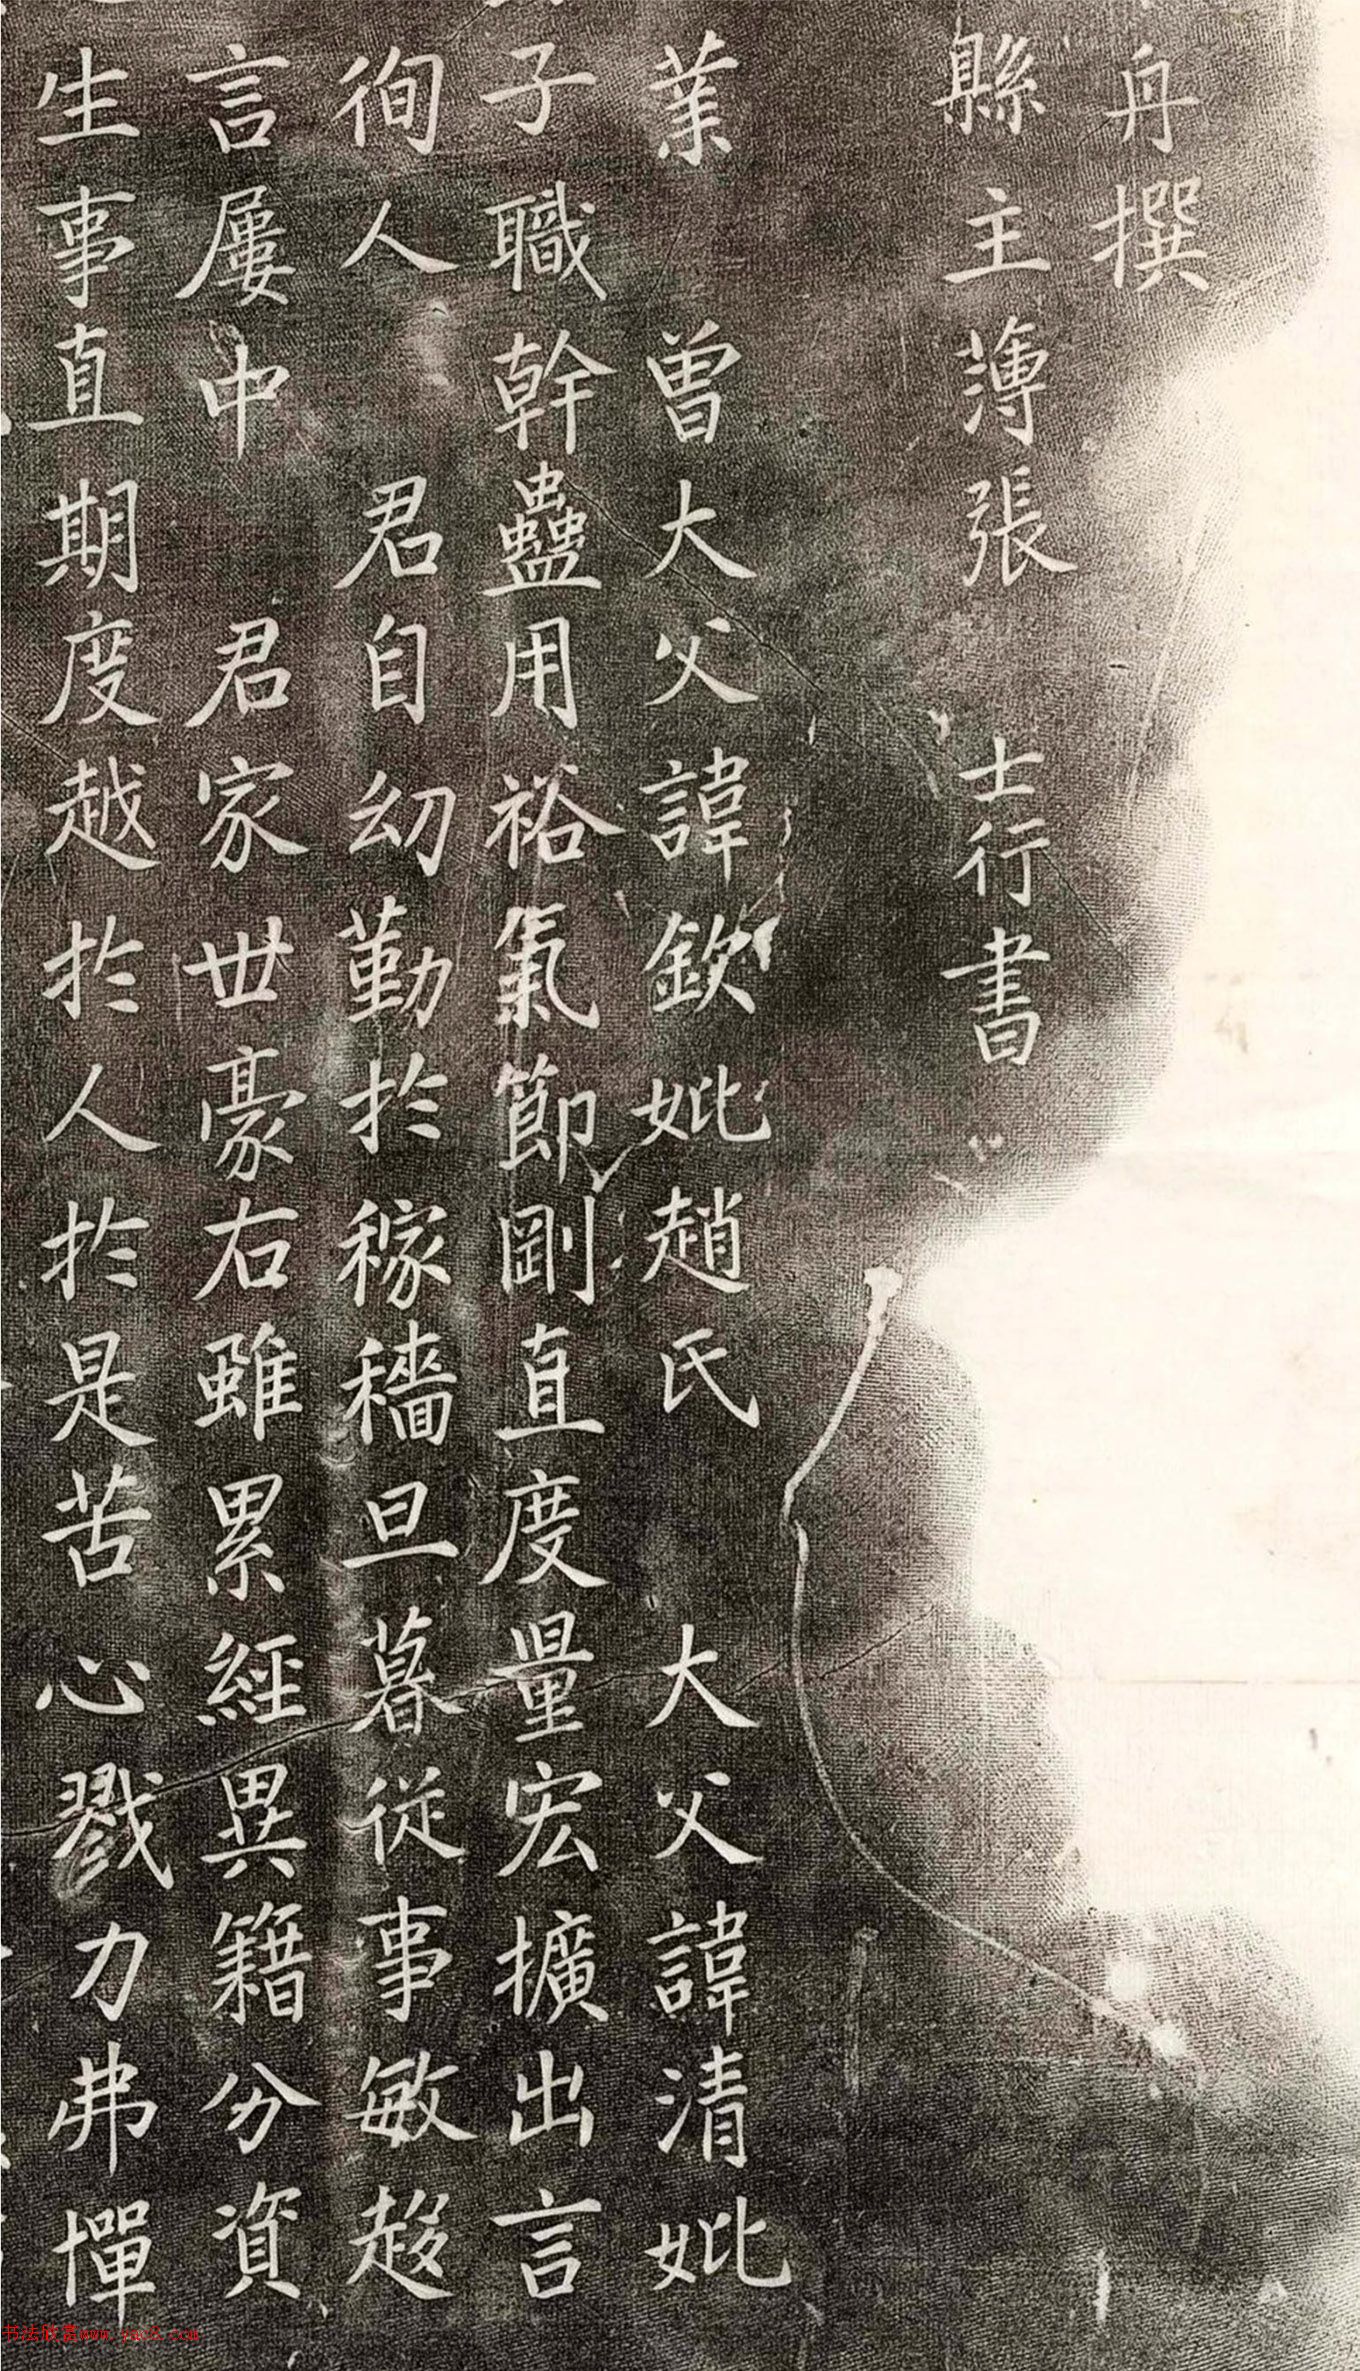 舟撰
縣主薄張 士行書
業 曽大父諱欽妣趙氏 大父諱清妣
子職幹蠱用裕氣節剛直度量宏擴出言
徇人 君自幼勤於稼穡旦暮從事敏趍
言屢中 君家世豪右雖累經異籍分資
生事直期度越於人於是苦心戮力弗憚
书法欣赏www.yac8.com